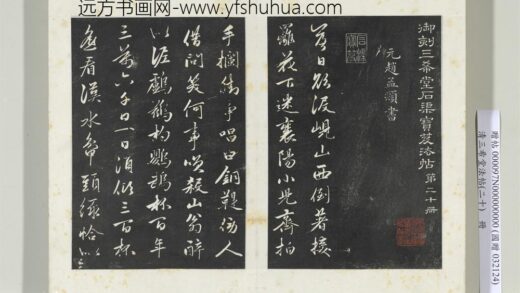 远方书画网-www.yfshuhua.com
御刻三希堂石渠寶笈法帖 第二十冊
元趙孟頫書
落日欲沒峴山西倒著接
䍦花下迷襄陽小兒齊拍
手攔街爭唱白銅鞮傍人
借問笑何事笑殺山翁醉
似泥鸕鶿杓鸚鵡杯百年
三萬六千日一日須傾三百杯
遙看漢水鴨頭綠恰似
贈帖 000097N000000000 (國贈 032124)
清三希堂法帖(二十) 冊